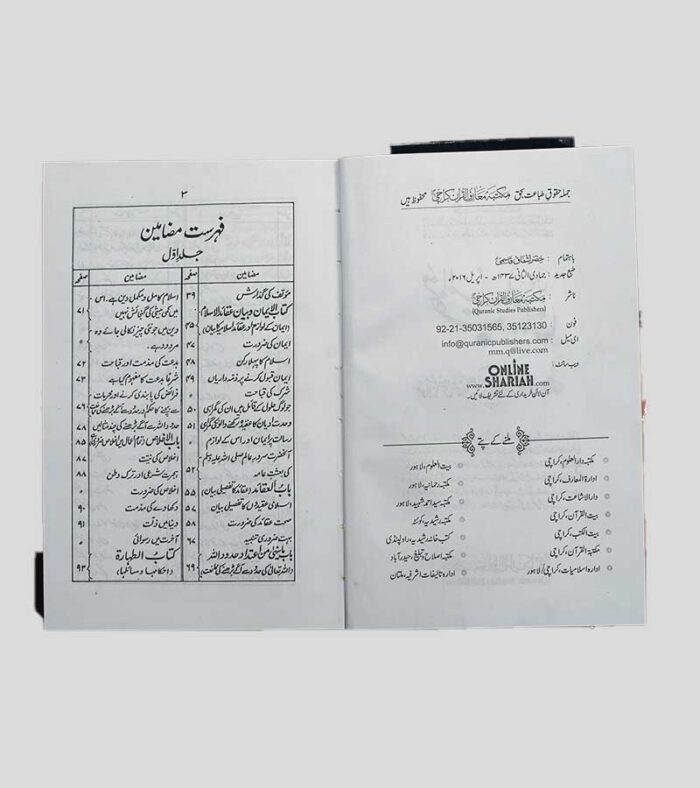 جملہ حقوق طباعت بحق مکتبہ معارف القرآن کراچی محفوظ ہیں
باہتمام : خضر اشفاق قاسمی
طبع جدید : جمادی الثانی ۱۴۳۷ھ - اپریل ۲۰۱۶ء
ناشر : مکتبہ معارف القرآن کراچی
(Quranic Studies Publishers)
فون : 92-21-35031565, 35123130
ای میل : info@quranicpublishers.com
mm.q@live.com
ویب سائٹ : ONLINE
SHARIAH.com
www.
آن لائن خریداری کے لئے تشریف لائیں۔
ملنے کے پتے
مکتبہ دارالعلوم، کراچی
ادارۃ المعارف، کراچی
دارالاشاعت، کراچی
بیت القرآن، کراچی
بیت الکتب، کراچی
مکتبۃ القرآن، کراچی
ادارہ اسلامیات، کراچی/لاہور
بیت العلوم، لاہور
مکتبہ رحمانیہ، لاہور
مکتبہ سید احمد شہید، لاہور
مکتبہ رشیدیہ، کوئٹہ
کتب خانہ رشیدیہ، راولپنڈی
مکتبہ اصلاح و تبلیغ، حیدرآباد
ادارہ تالیفات اشرفیہ، ملتان
۳
فہرست مضامین
جلد اوّل
مضامین صفحہ مضامین صفحہ
مؤلف کی گذارش ۲۹
کتاب الایمان وبیان عقائد الاسلام
(ایمان کے لوازم اور عقائد اسلام کا بیان) ۳۵
ایمان کی ضرورت ۳۷
اسلام کا پہلا رکن ״
ایمان قبول کرنے پر ذمہ داریاں ۴۹
شرک کی قباحت ״
جو لوگ حلول کے قائل ہیں ان کی گمراہی ۵۰
وحدت ادیان کا عقیدہ رکھنے والوں کی گمراہی ۵۱
رسالت پر ایمان اور اس کے لوازم ״
آنحضرت سرور عالم صلی اللہ علیہ وسلم
کی بعثت عامہ ۵۲
باب العقائد (عقائد کا تفصیلی بیان) ۵۵
اسلامی عقیدوں کا تفصیلی بیان ۵۷
صحت عقائد کی ضرورت ۵۸
بہت ضروری تنبیہ ۶۴
باب ینہیٰ من اعتداء حدود اللہ
(اللہ تعالیٰ کی حدود سے آگے بڑھنے کی ممانعت) ۶۹
اسلام کامل و مکمل دین ہے۔ اس
میں کمی بیشی کی گنجائش نہیں ۷۱
دین میں جو نئی چیز نکالی جائے وہ
مردود ہے ״
بدعت کی مذمت اور قباحت ۷۲
شرعاً بدعت کا مفہوم کیا ہے ۷۳
فرائض کی پابندی کرنے اور محرمات
۷۶
۷۸
باب الاخلاص ۸۵
اخلاص کی نیت ۸۷
ہجرت شرعی اور ترک وطن ۸۸
اخلاص کی ضرورت ״
دکھاوے کی مذمت ۹۰
دنیا میں ذلت ۹۱
آخرت میں رسوائی ״
کتاب الطہارۃ
۹۳